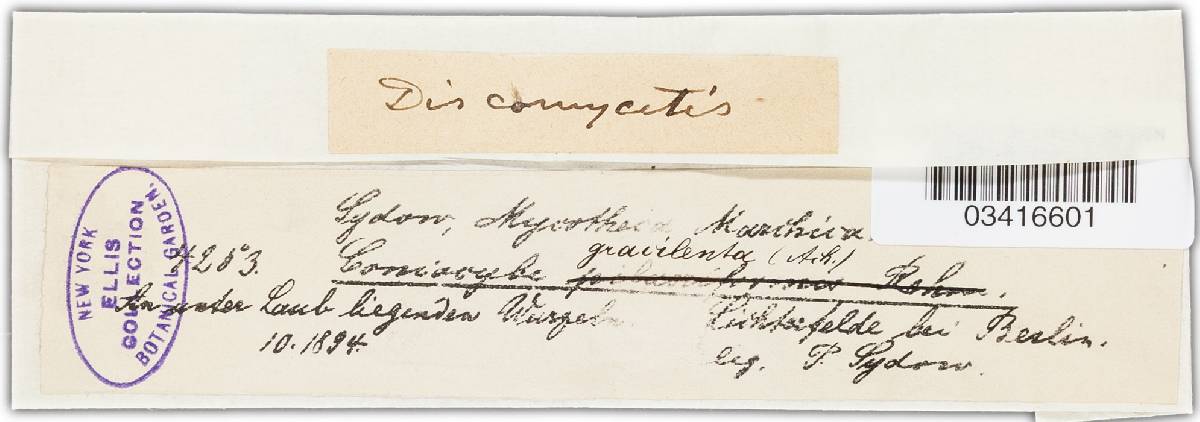 Discomycetes
03416601
NEW YORK
BOTANICAL GARDEN.
ELLIS
COLLECTION
Sydow, Mycotheca Marchica.
gracilenta (Ach.)
4253. Coniocybe piluliformis Rehm.
An unter Laub liegenden Wurzeln. Lichterfelde bei Berlin.
10.1894. leg. P. Sydow.